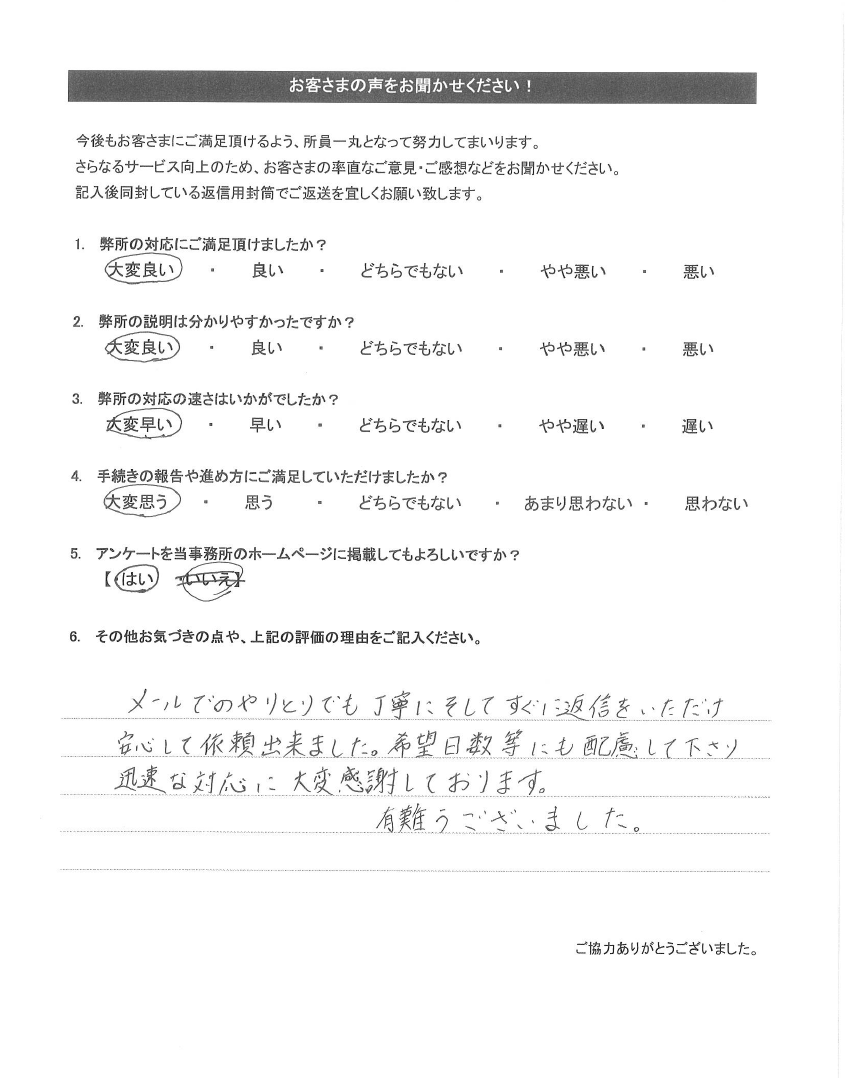 お客さまの声をお聞かせください！
今後もお客さまにご満足頂けるよう、所員一丸となって努力してまいります。
さらなるサービス向上のため、お客さまの率直なご意見・ご感想などをお聞かせください。
記入後同封している返信用封筒でご返送を宜しくお願い致します。
1. 弊所の対応にご満足頂けましたか？
大変良い ・ 良い ・ どちらでもない ・ やや悪い ・ 悪い
2. 弊所の説明は分かりやすかったですか？
大変良い ・ 良い ・ どちらでもない ・ やや悪い ・ 悪い
3. 弊所の対応の速さはいかがでしたか？
大変早い ・ 早い ・ どちらでもない ・ やや遅い ・ 遅い
4. 手続きの報告や進め方にご満足していただけましたか？
大変思う ・ 思う ・ どちらでもない ・ あまり思わない ・ 思わない
5. アンケートを当事務所のホームページに掲載してもよろしいですか？
【・はい ・いいえ】
6. その他お気づきの点や、上記の評価の理由をご記入ください。
メールでのやりとりでも丁寧にそしてすぐに返信をいただけ
安心して依頼出来ました。希望日数等にも配慮して下さり
迅速な対応に大変感謝しております。
有難うございました。
ご協力ありがとうございました。